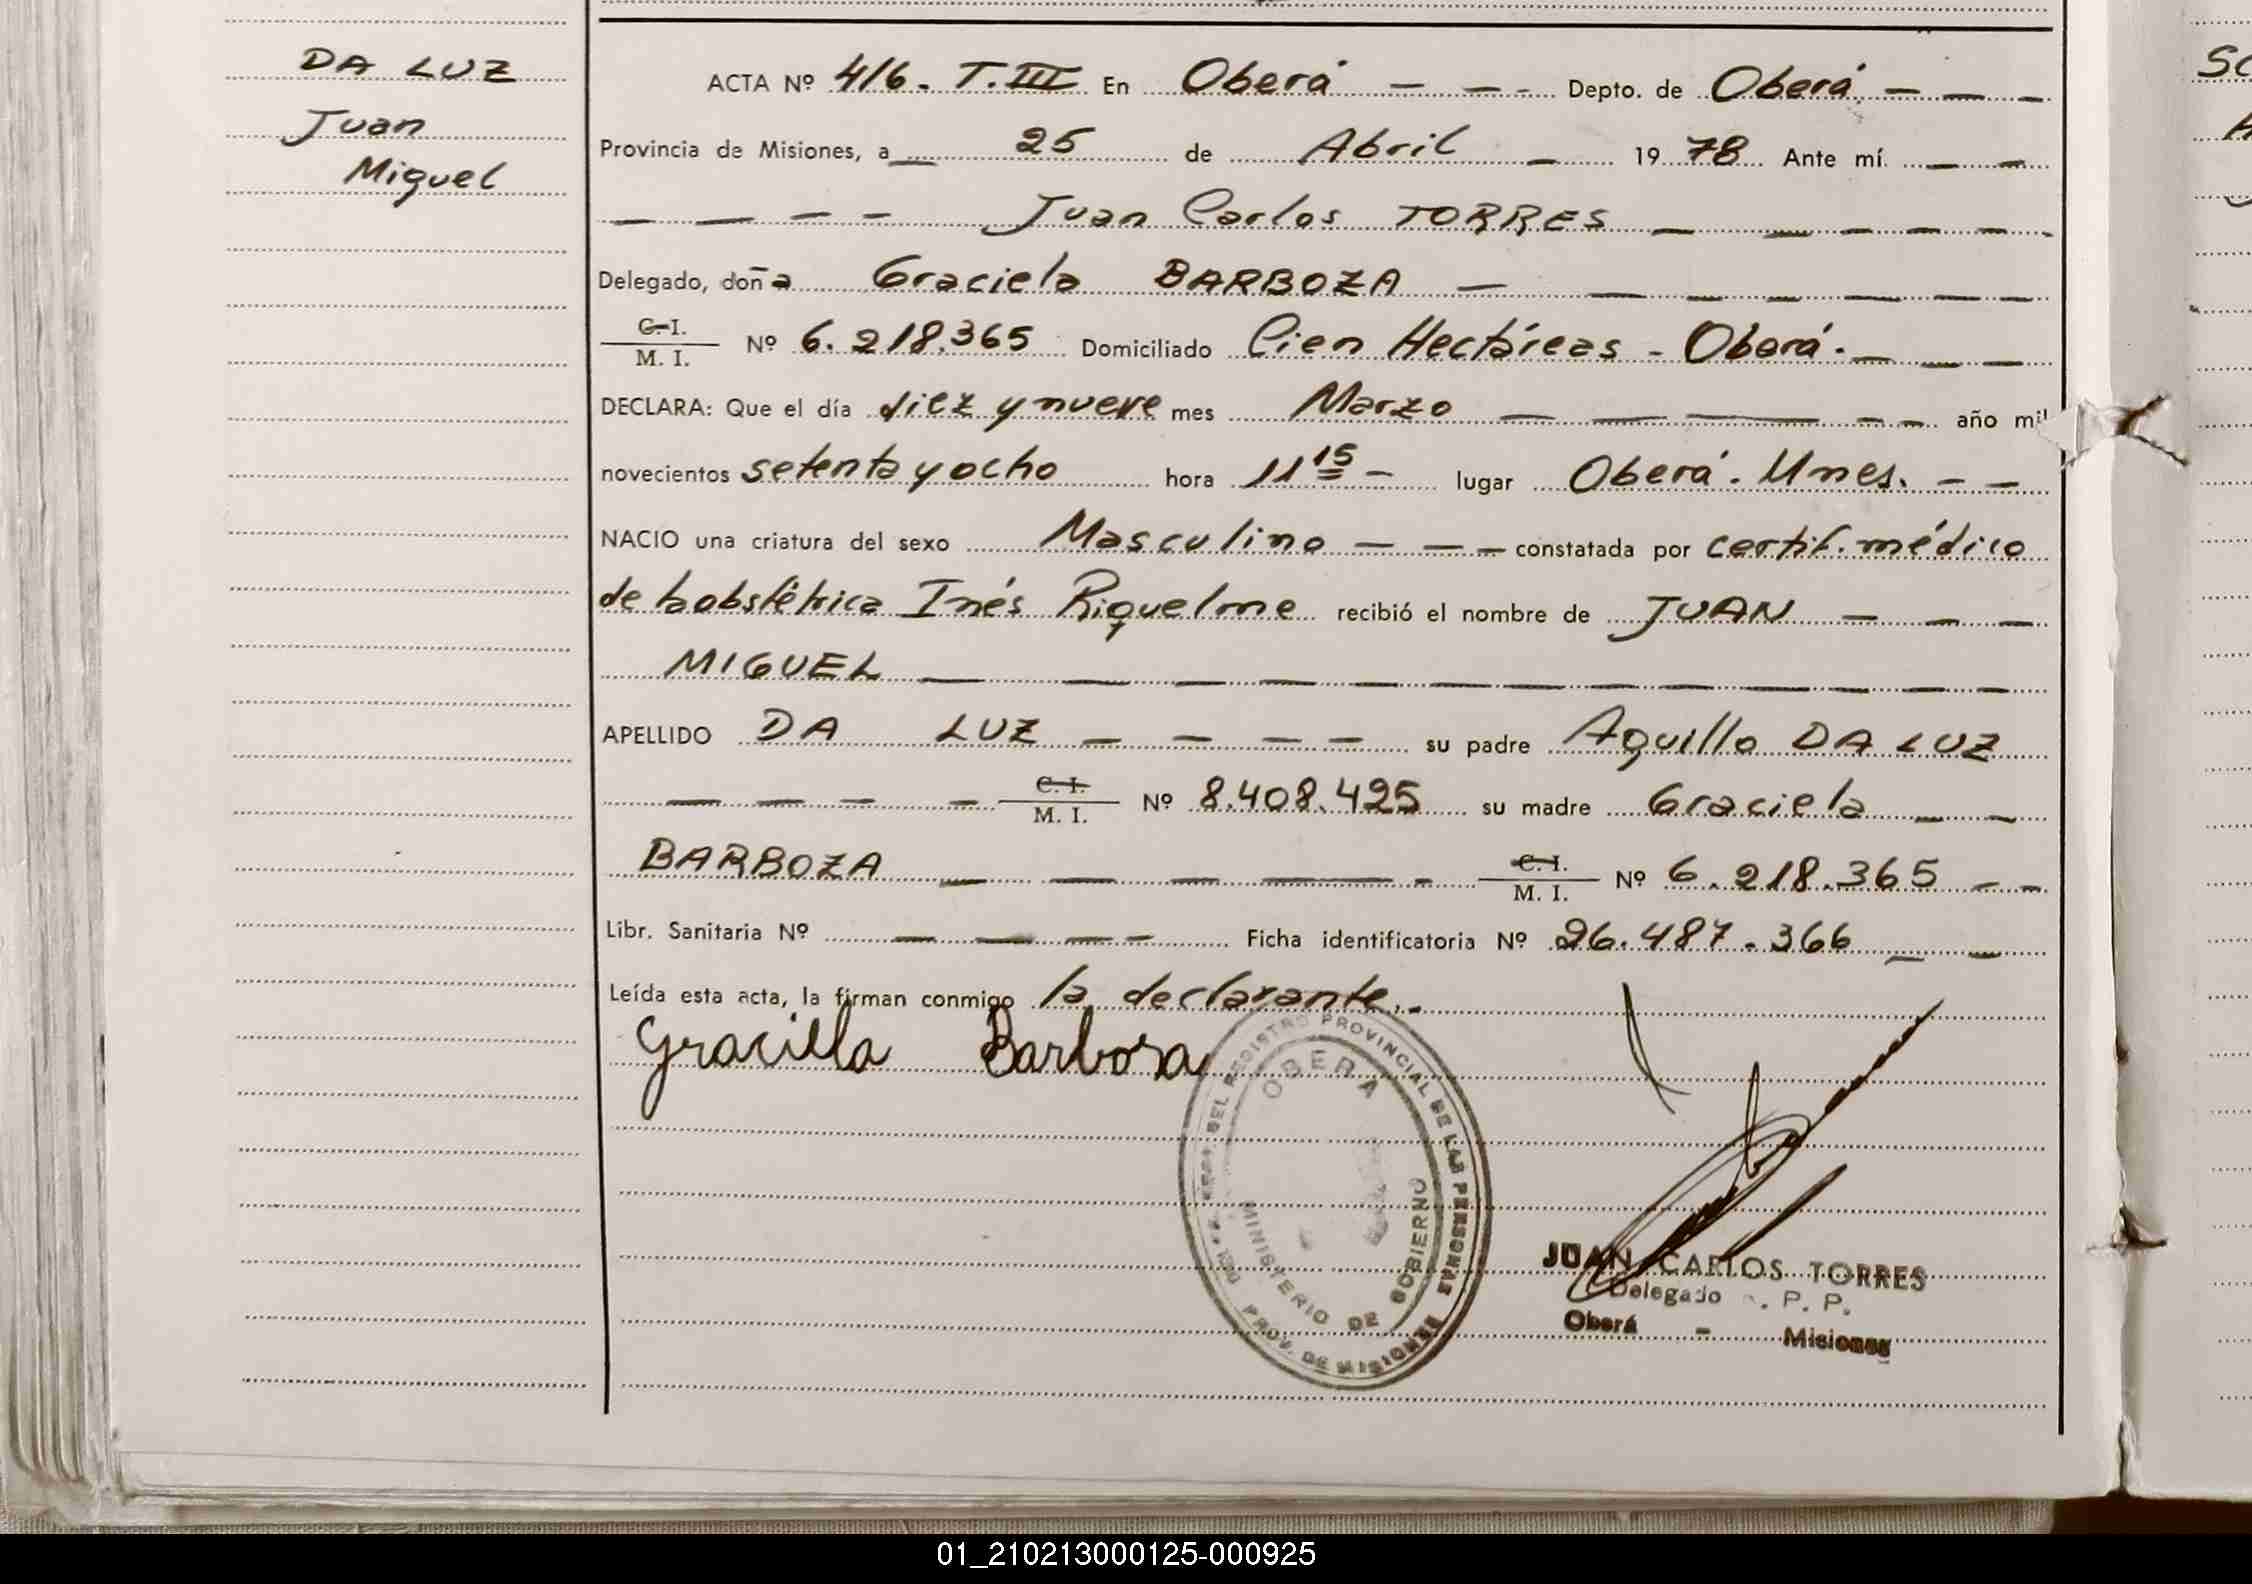 DA LUZ
Juan
Miguel
ACTA Nº 416. T.III En Oberá - - - Depto. de Oberá - - -
Provincia de Misiones, a - 25 de Abril - 1978 Ante mí. - -
- - - - Juan Carlos TORRES - - - - - -
Delegado, doña Graciela BARBOZA - - - - - - -
C.I.
M. I. Nº 6.218.365 Domiciliado Cien Hectáreas - Oberá. - - -
DECLARA: Que el día diez y nueve mes Marzo - - - - año mil
novecientos setenta y ocho hora 11 15 - lugar Oberá. Mnes. - -
NACIO una criatura del sexo Masculino - - - constatada por certif. médico
de la obstétrica Inés Riquelme recibió el nombre de JUAN - - -
MIGUEL - - - - - - - - - - - - -
APELLIDO DA LUZ - - - - su padre Aquillo DA LUZ
- - - - C. I.
M. I. Nº 8.408.425 su madre Graciela - -
BARBOZA - - - - - C. I.
M. I. Nº 6.218.365 - -
Libr. Sanitaria Nº - - - - Ficha identificatoria Nº 26.487.366 - -
Leída esta acta, la firman conmigo la declarante. -
Graciella Barboza
REGISTRO PROVINCIAL DE LAS PERSONAS
OBERA
MINISTERIO DE GOBIERNO
PROV. DE MISIONES
JUAN CARLOS TORRES
Delegado . P. P.
Oberá - Misiones
SC
A
01_210213000125-000925